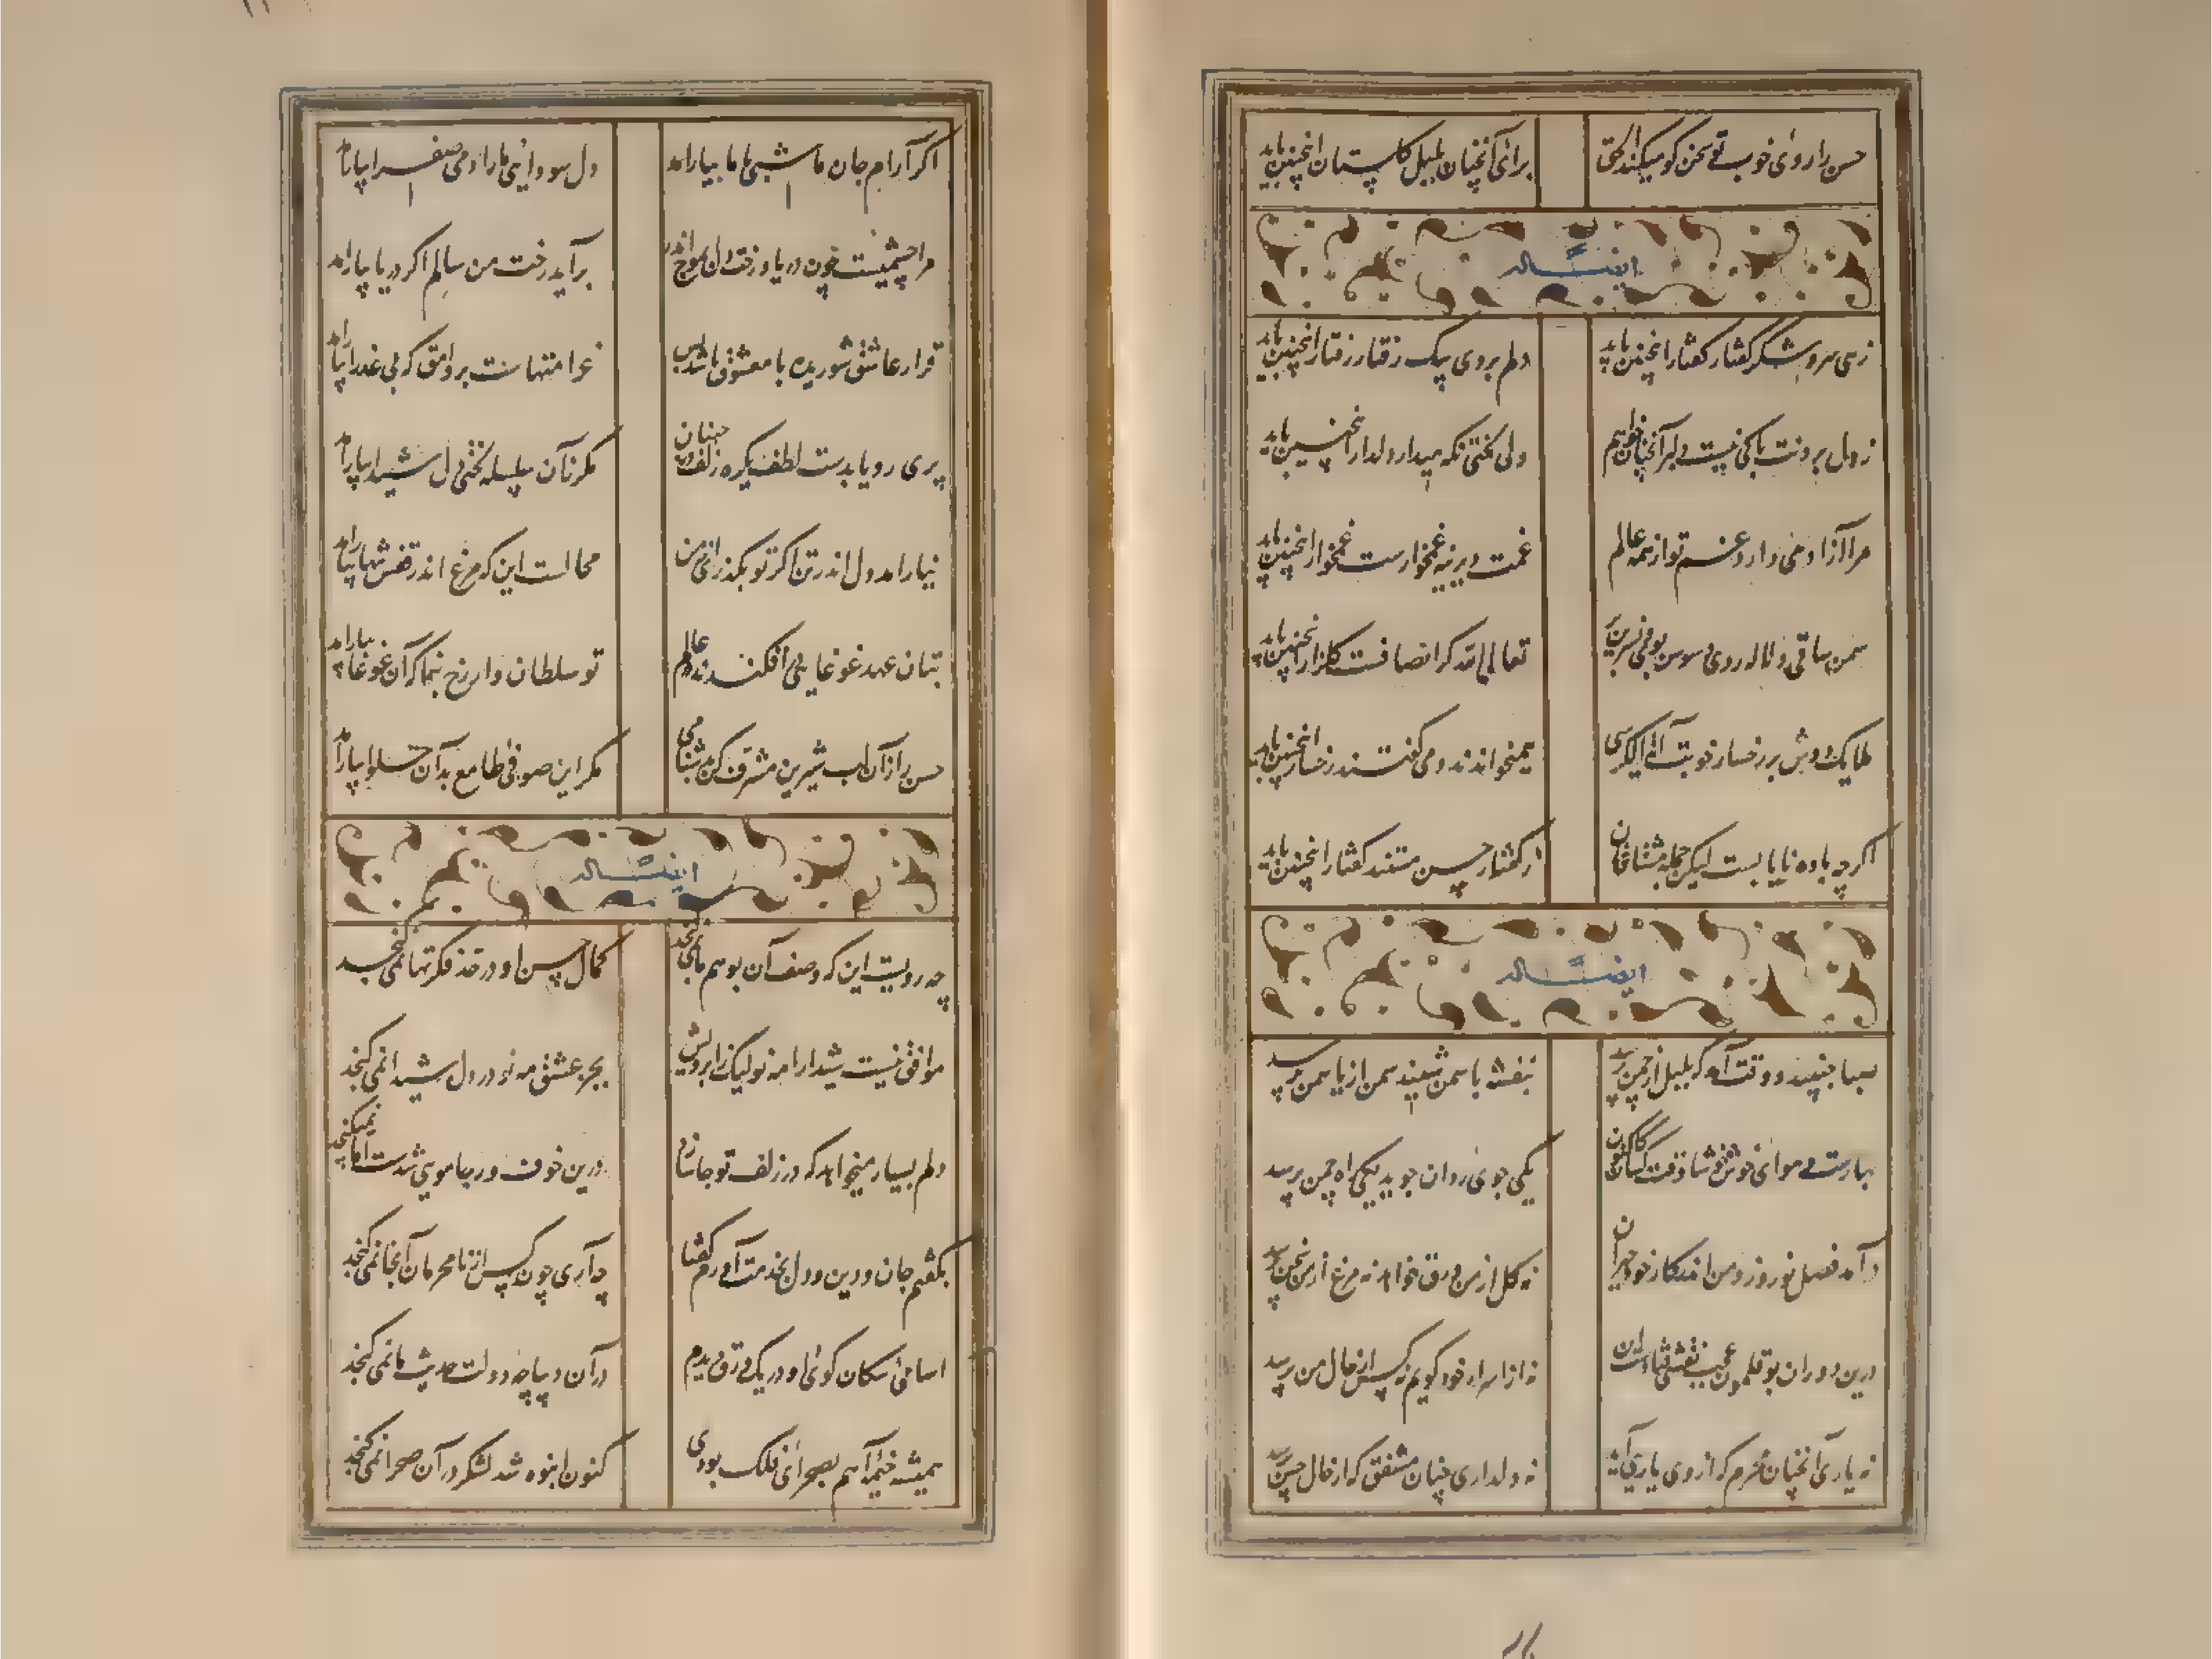 حسن را روی خوب تو سخن کو میکند الحق
برای آنچنان بلبل کلستان اینچنین باید
ایضاً له
زهی سرو شکر کفتار کفتار اینچنین باید
دلم بردی بیک رفتار رفتار اینچنین باید
ز دل بردنت باکی نیست دلبر آنچنان خواهم
ولی لختی نکه میدار دلدار اینچنین باید
مرا آزاد می دارد غم تو از همه عالم
غمت دیرینه غمخوارست غمخوار اینچنین باید
سمن ساقی و لاله روی سوسن بوی نسرین بر
تعالی الله کر انصافست کلزار اینچنین باید
ملایک دوش بر رخسار خوبت آیة الکرسی
همیخواندند و می کفتند رخسار اینچنین باید
اکرچه باده نایابست لیکن جمله مشتاقان
از کفتار حسن مستند کفتار اینچنین باید
ایضاً له
صبا جنبید و وقت آمد که بلبل از چمن پرسد
بنفشه با سمن شیند سمن از یاسمن پرسد
بهارست و هوای خوش خوشا وقت کسان کاکنون
یکی جوی روان جوید یکی راه چمن پرسد
درآمد فصل نوروز و من اندر کار خود حیران
نه کل از من ورق خواهد نه مرغ از من سخن پرسد
درین دوران بوقلمون عجب نقشی فتادست این
نه از اسرار خود کویم نه کس از حال من پرسد
نه یاری آنچنان محرم که از وی یاری آید
نه دلداری چنان مشفق که از حال حسن پرسد
اکر آرام جان ما شبی با ما بیارامد
دل سودایی ما را دمی صفرا بیارامد
مرا چشمیست چون دریا و رخت دل بموج اندر
برآید رخت من سالم اکر دریا بیارامد
قرار عاشق شوریده با معشوق باشد بس
غرامتهاست بر وامق که بی عذرا بیارامد
پری رویا بدست لطف یکره زلف جنبان
مکر زان سلسله لختی دل شیدا بیارامد
نیارامد دل اندر تن اکر تو بکذری از من
محالست این که مرغ اندر قفس تنها بیارامد
بتان عهد غوغایی افکندند در عالم
تو سلطان وار رخ بنما کز آن غوغا بیارامد
حسن را زآن لب شیرین مشرف کن
مکر این صوفی طامع بدآن حلوا بیارامد
ایضاً له
چه رویست این که وصف آن بوهم ما نمی کنجد
کمال حسن او در حد فکرتها نمی کنجد
موافق نیست شیدا را مه نو لیک زابرویش
بجز عشق مه نو در دل شیدا نمی کنجد
دلم بسیار میخواهد که در زلف تو جا سازم
درین خوف و رجا مویی شدست اما نمیکنجد
بکفتم جان و دین و دل بخدمت آورم کفتا
چه آری چون کس از نامحرمان آنجا نمی کنجد
اسامی سکان کوی او در یک ورق دیدم
در آن دیباچه دولت حدیث ما نمی کنجد
همیشه خیمه آهم بصحرای فلک بودی
کنون انبوه شد لشکر در آن صحرا نمی کنجد